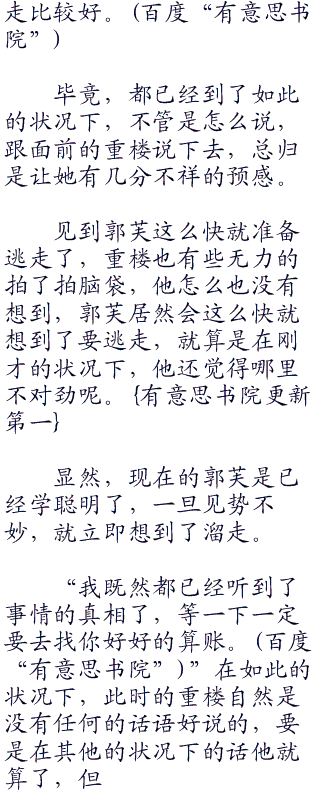 走比较好。(百度“有意思书
院”)
毕竟，都已经到了如此
的状况下，不管是怎么说，
跟面前的重楼说下去，总归
是让她有几分不祥的预感。
见到郭芙这么快就准备
逃走了，重楼也有些无力的
拍了拍脑袋，他怎么也没有
想到，郭芙居然会这么快就
想到了要逃走，就算是在刚
才的状况下，他还觉得哪里
不对劲呢。{有意思书院更新
第一}
显然，现在的郭芙是已
经学聪明了，一旦见势不
妙，就立即想到了溜走。
“我既然都已经听到了
事情的真相了，等一下一定
要去找你好好的算账。(百度
“有意思书院”)”在如此的
状况下，此时的重楼自然是
没有任何的话语好说的，要
是在其他的状况下的话他就
算了，但